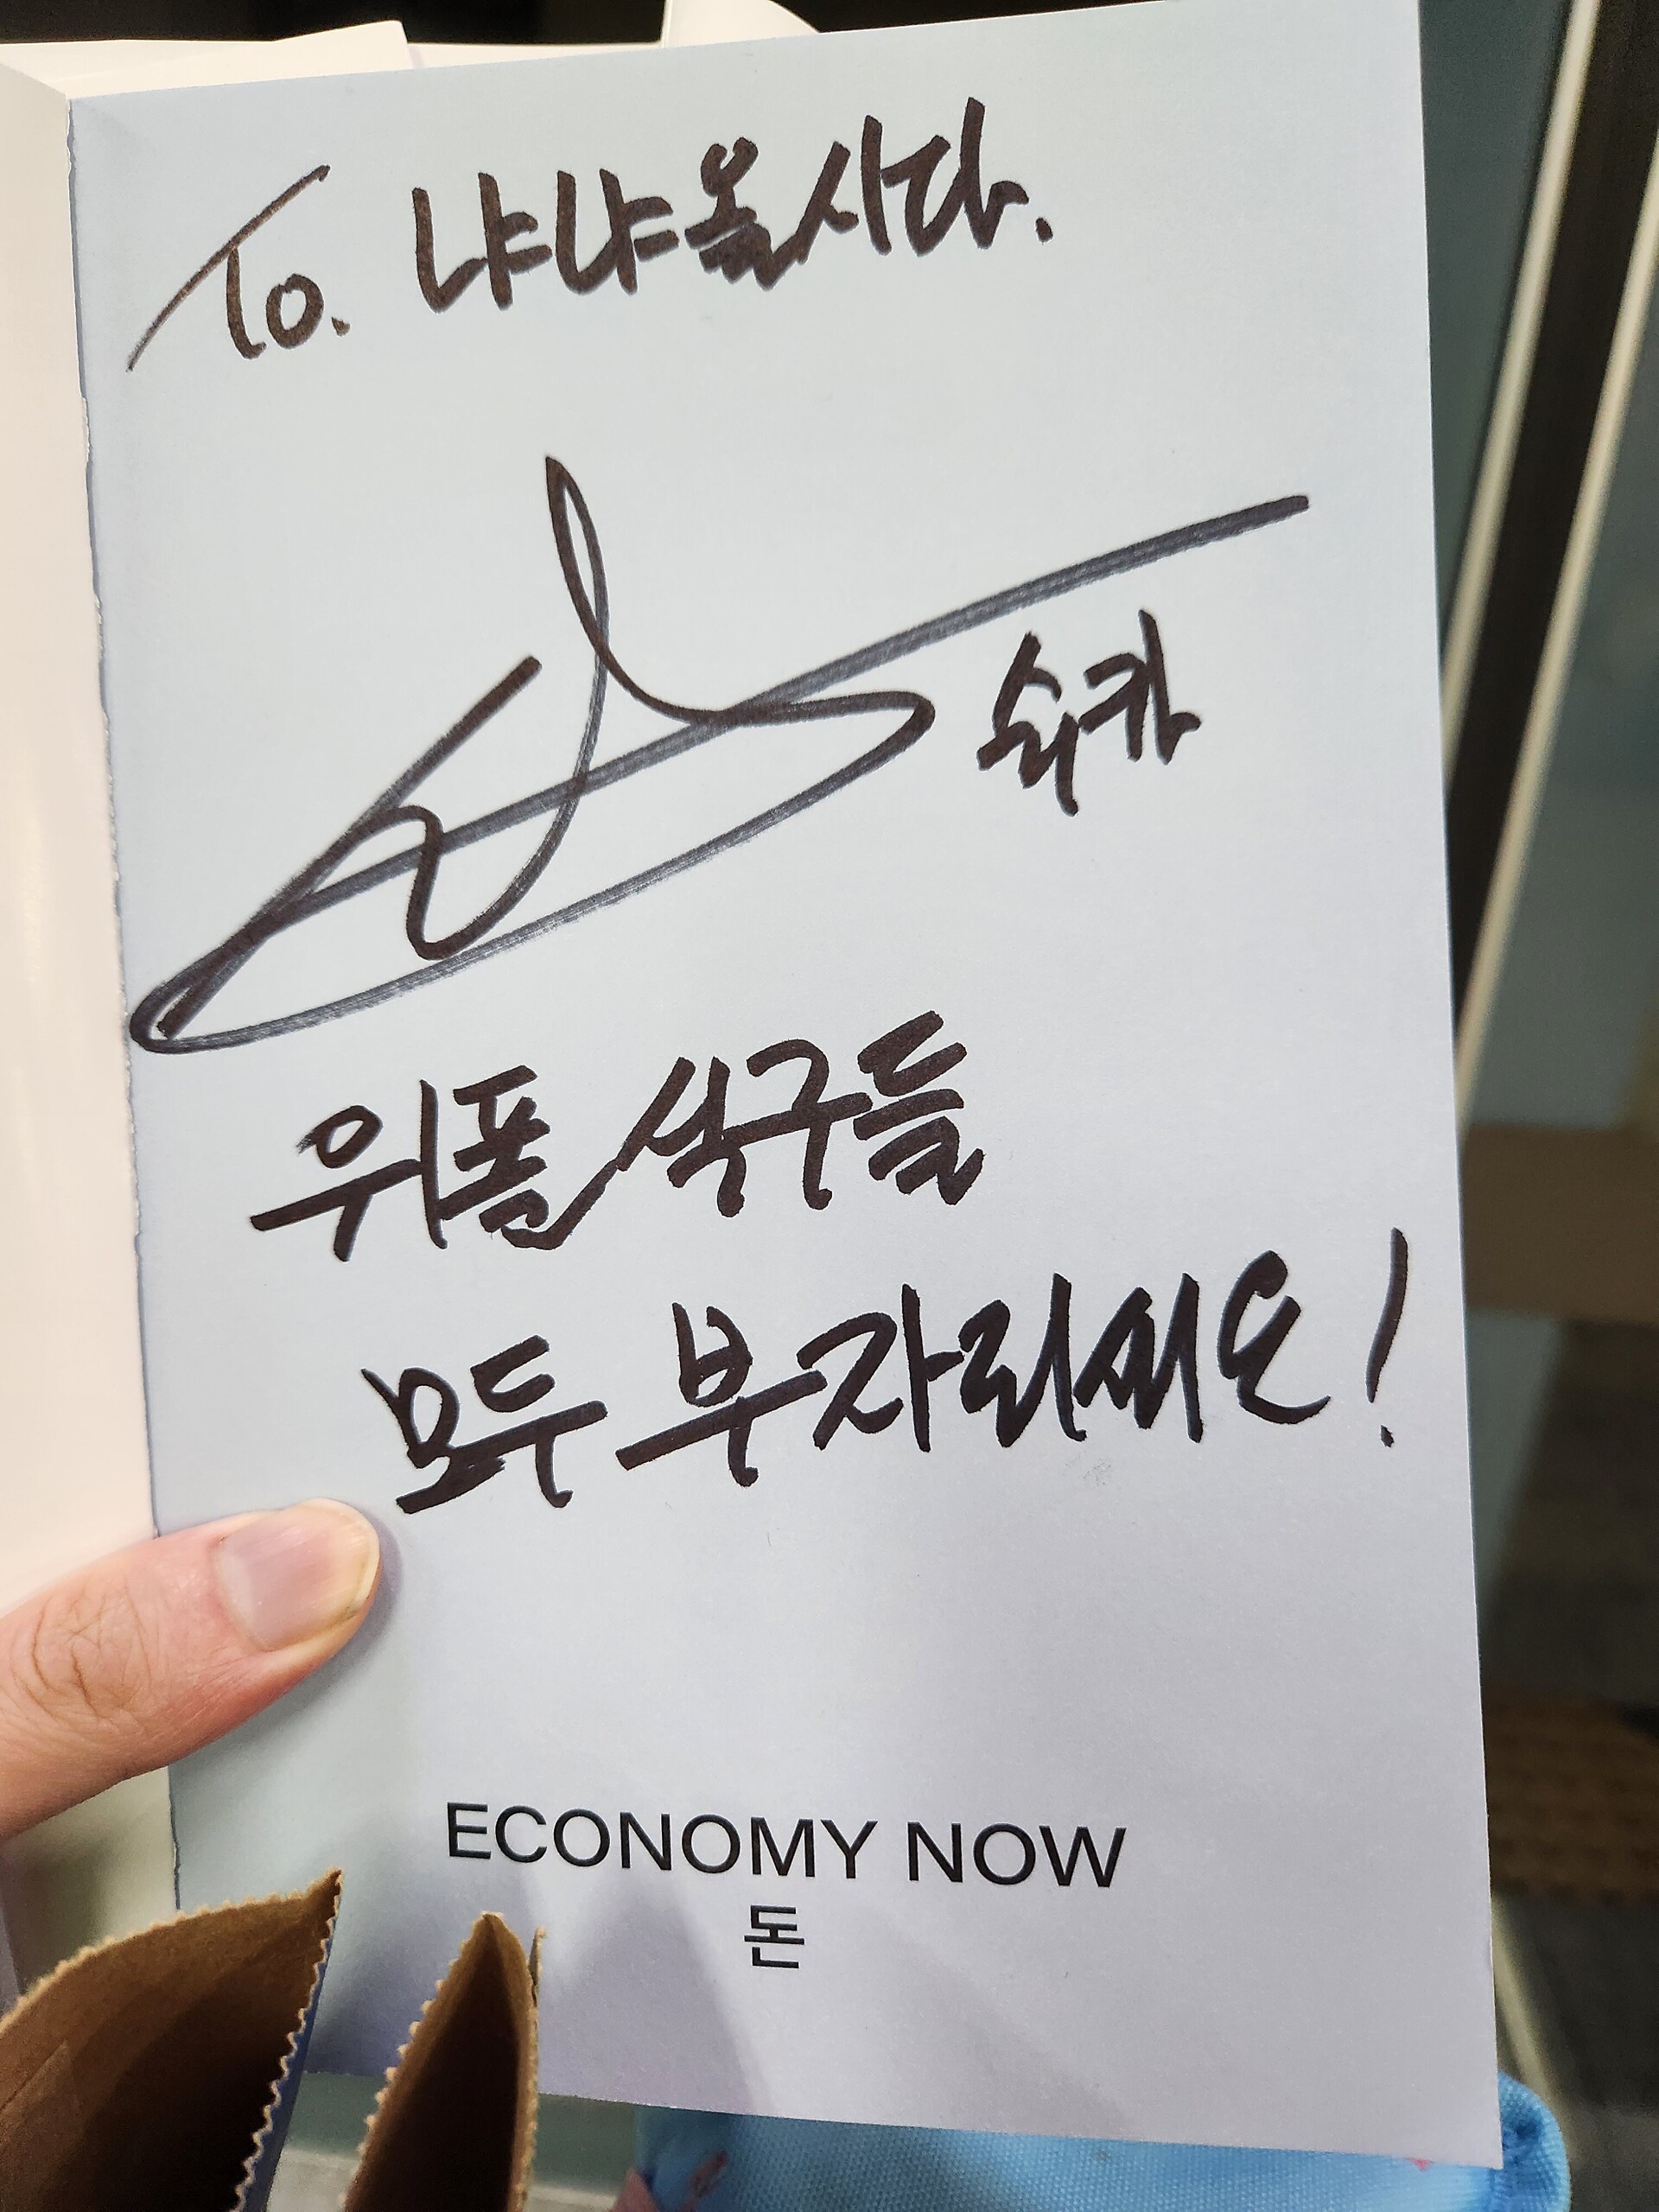 To. 냐냐옹시다.
슈카
위폴 식구들
모두 부자되세요!
ECONOMY NOW
돈